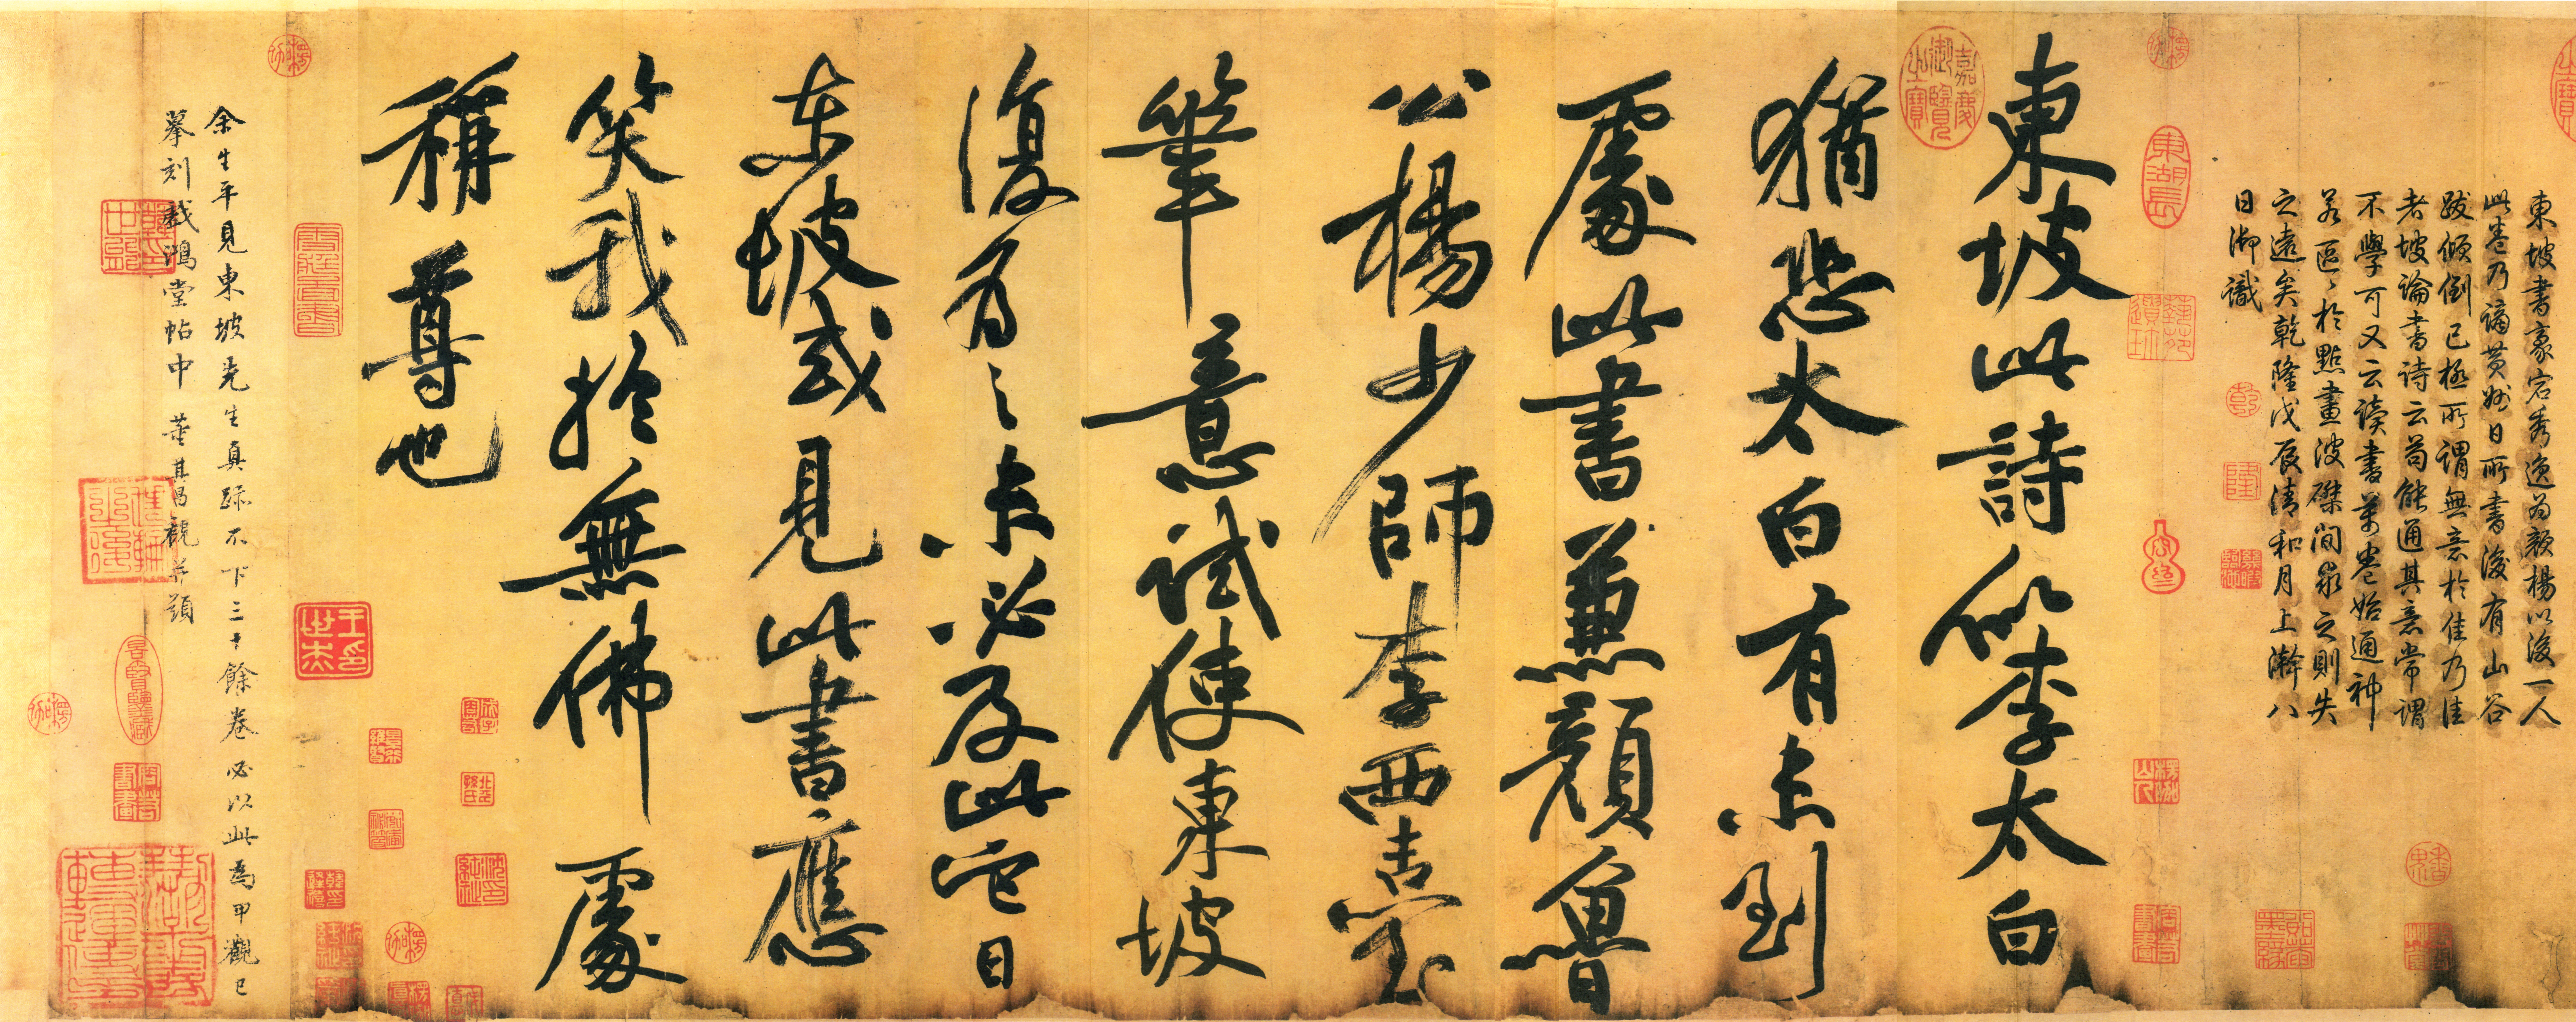 東坡書豪宕秀逸為顏楊以後一人
此卷乃謫黃州日所書後有山谷
跋傾倒已極所謂無意於佳乃佳
者坡論書詩云苟能通其意常謂
不學可又云讀書萬卷始通神
若區〻於點畫波磔間求之則失
之遠矣乾隆戊辰清和月上澣八
日御識
乾
隆
東湖長
嘉慶御覽之寶
東坡此詩似李太白
猶恐太白有未到
處此書兼顏魯
公楊少師李西臺
筆意試使東坡
復為之未必及此它日
東坡或見此書應
笑我於無佛處
稱尊也
王世杰印
余生平見東坡先生真跡不下三十餘卷必以此為甲觀已
摹刻戲鴻堂帖中 董其昌觀并題